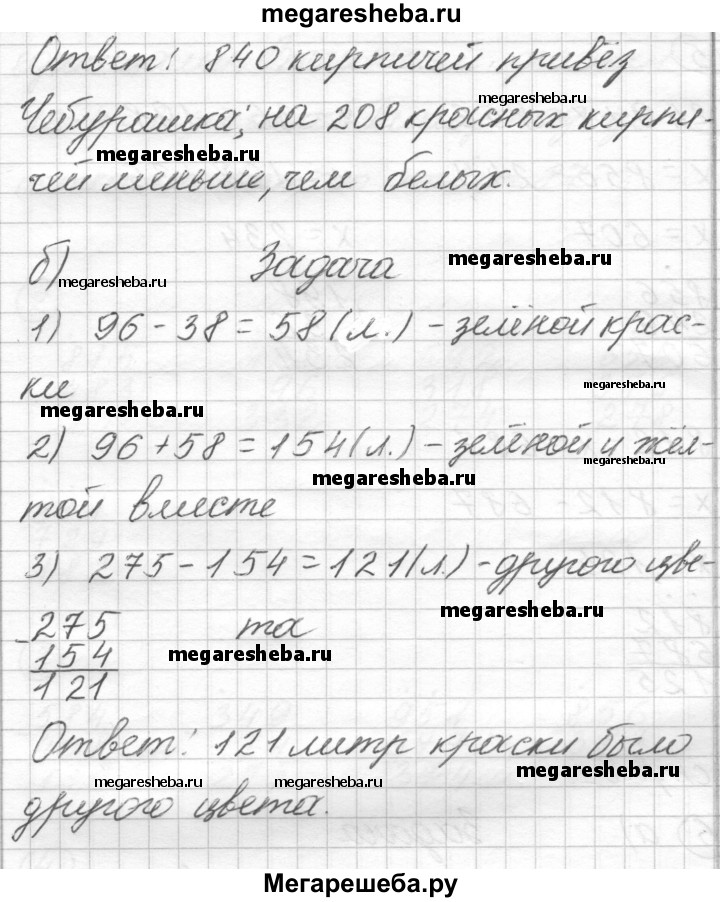 megaresheba.ru
Ответ: 840 кирпичей привёз
megaresheba.ru
Чебурашка; на 208 красных кирпи-
megaresheba.ru
чей меньше, чем белых.
б) Задача megaresheba.ru
megaresheba.ru
1) 96 - 38 = 58 (л.) - зелёной крас-
ки megaresheba.ru
megaresheba.ru
2) 96 + 58 = 154 (л.) - зелёной и жёл-
megaresheba.ru
megaresheba.ru
той вместе
3) 275 - 154 = 121 (л.) - другого цве-
megaresheba.ru
- 275 та
154 megaresheba.ru
121
Ответ: 121 литр краски было
megaresheba.ru
megaresheba.ru megaresheba.ru
другого цвета.
Мегарешеба.ру